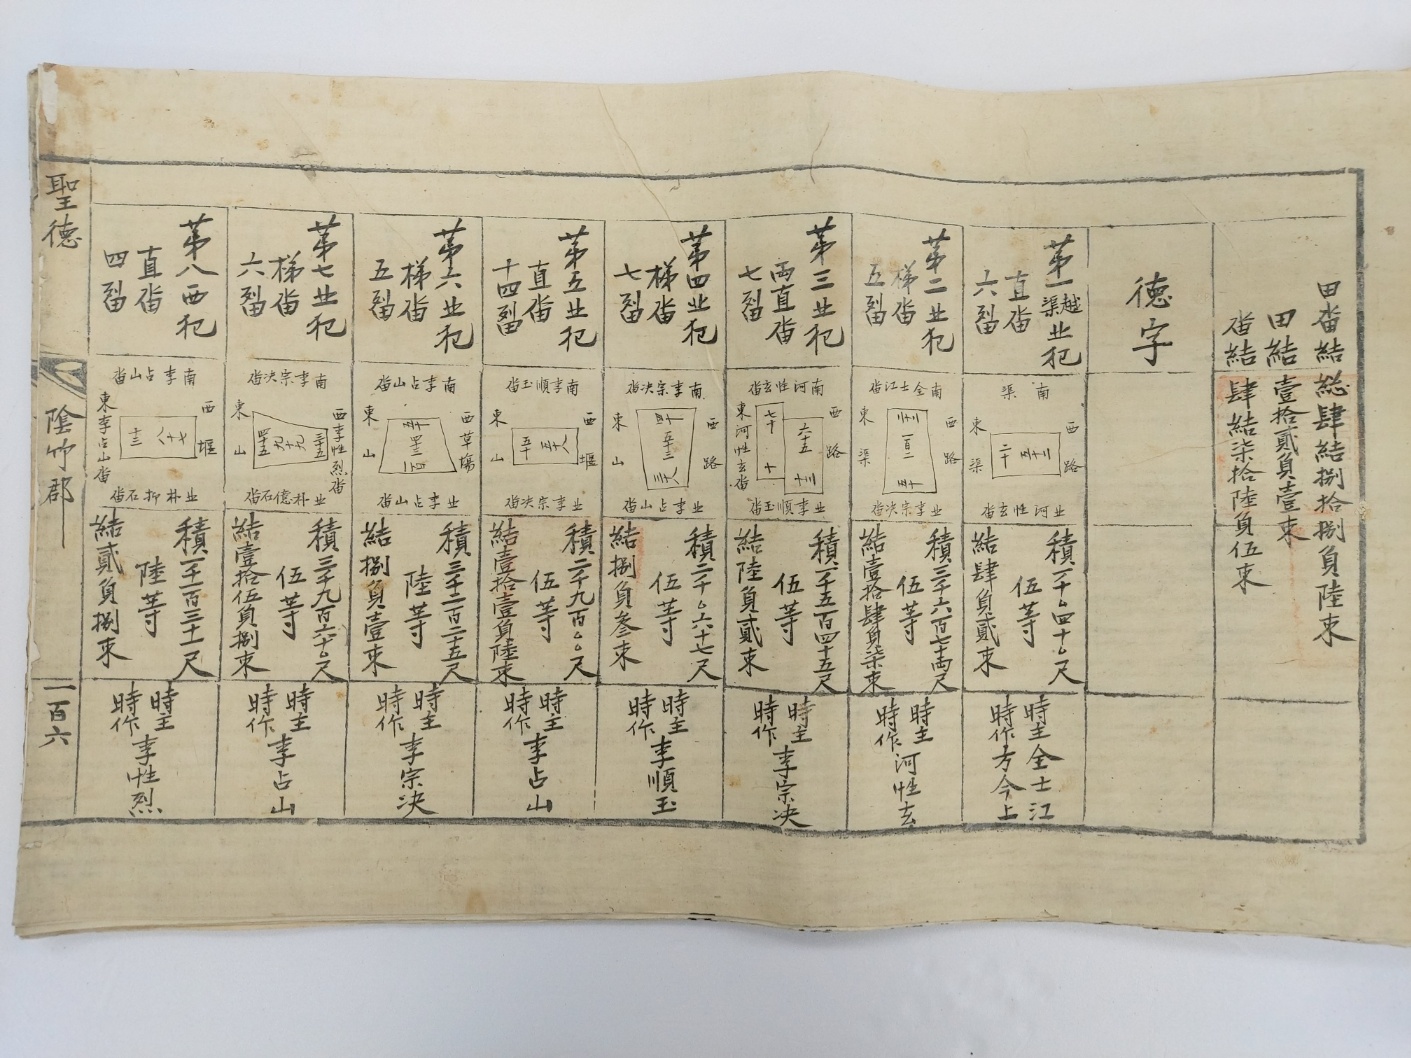 田畓結総肆結捌拾捌負陸束
田結壹拾貳負壹束
畓結肆結柒拾陸負伍束
德字
第一越渠北犯
直畓
六㽝
南渠
西路
東渠
北河性玄畓
二十
積二千〇四十〇尺
伍等
結肆負貳束
時主全士江
時作方今上
第二北犯
梯畓
五㽝
南全士江畓
西路
東渠
北李宗決畓
五十
積三千六百七十両尺
伍等
結壹拾肆負柒束
時主
時作河性玄
第三北犯
両直畓
七㽝
南河性玄畓
西路
東河性玄畓
北李順玉畓
七十
十
六十五
十三
積二千五百四十五尺
伍等
結陸負貳束
時主
時作李宗决
第四北犯
梯畓
七㽝
南李宗决畓
西路
東山
北李占山畓
積二千〇六十七尺
伍等
結捌負叁束
時主
時作李順玉
第五北犯
直畓
十四㽝
南李順玉畓
西堰
東山
北李宗决畓
五十
五十八
積二千九百〇〇尺
伍等
結壹拾壹負陸束
時主
時作李占山
第六北犯
梯畓
五㽝
南李占山畓
西草場
東山
北李占山畓
積三千二百二十五尺
陸等
結捌負壹束
時主
時作李宗决
第七北犯
梯畓
六㽝
南李宗决畓
西李性烈畓
東山
北朴億石畓
四十五
九十九
三十五
積三千九百六十〇尺
伍等
結壹拾伍負捌束
時主
時作李占山
第八西犯
直畓
四㽝
南李占山畓
西堰
東李占山畓
北朴抑石畓
八十七
十三
積一千一百三十一尺
陸等
結貳負捌束
時主
時作李性烈
聖德
陰竹郡
一百六